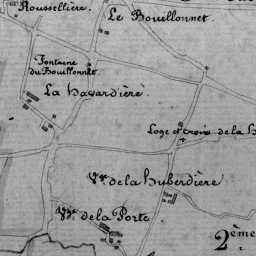 Rousselliere.
Le Bouillonnet
Fontaine
du Bouillonnet
La havardière.
Loge et croix de la h
Vge. de la huberdière
Vge. de la Porte
2ème